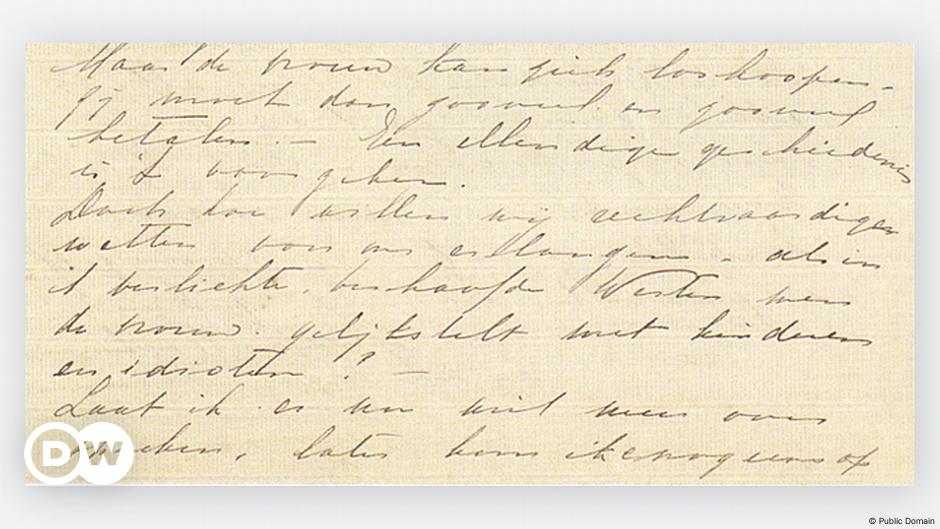 Maar de vrouw kan zich loskoopen.
Zij moet dan zooveel en zooveel
betalen. — Een ellendige geschiedenis
is 't voor
Doch hoe willen wij rechtvaardiger
wetten voor ons erlangen, als in
't verlichte, beschaafde Westen men
de vrouw gelijkstelt met kinderen
en idioten? —
Laat ik er nu niet meer over
later kom ik er nog eens op
DW
© Public Domain